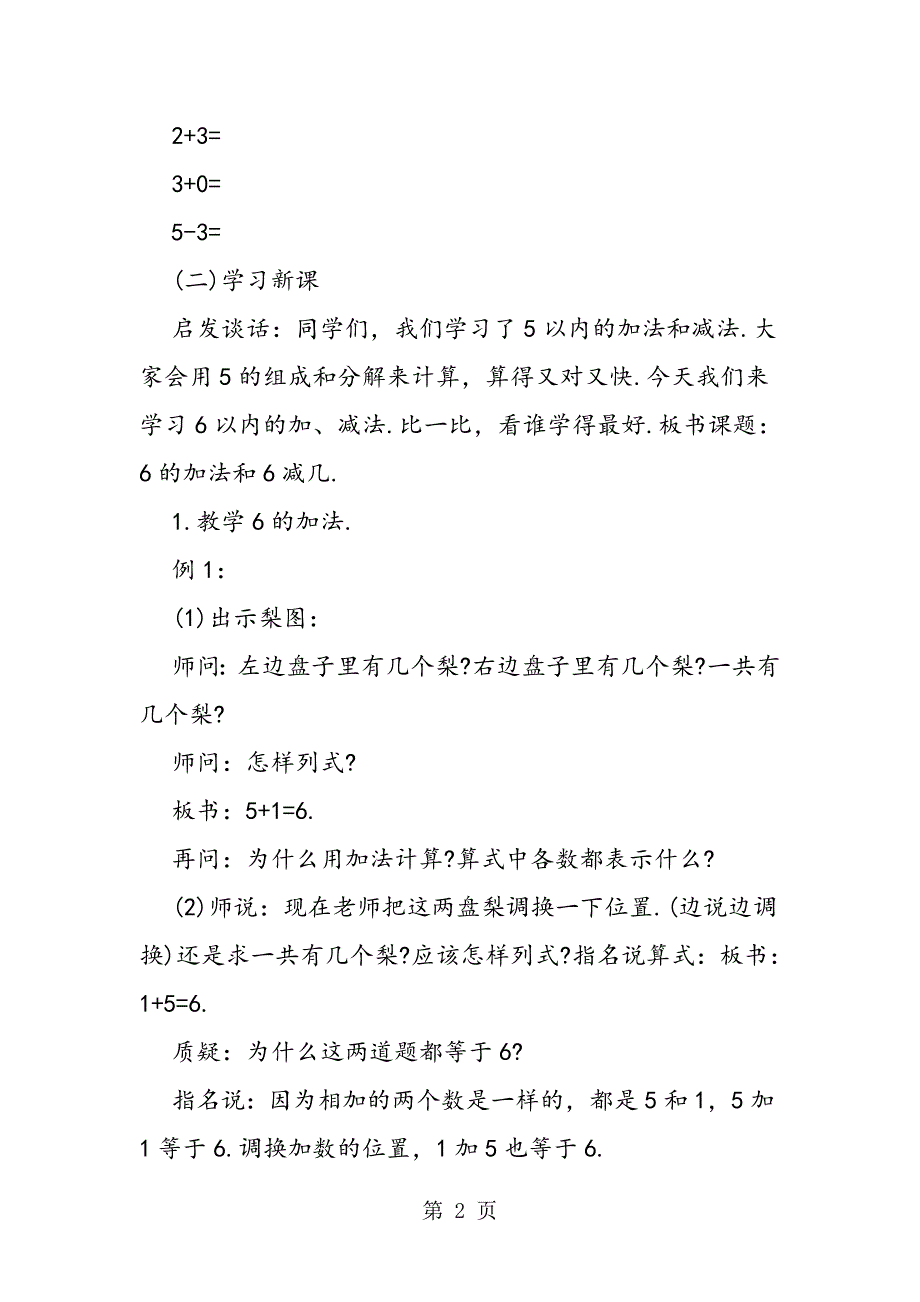 2+3=
3+0=
5-3=
(二)学习新课
启发谈话：同学们，我们学习了5以内的加法和减法.大
家会用5的组成和分解来计算，算得又对又快.今天我们来
学习6以内的加、减法.比一比，看谁学得最好.板书课题：
6的加法和6减几.
1.教学6的加法.
例1：
(1)出示梨图：
师问：左边盘子里有几个梨?右边盘子里有几个梨?一共有
几个梨?
师问：怎样列式?
板书：5+1=6.
再问：为什么用加法计算?算式中各数都表示什么?
(2)师说：现在老师把这两盘梨调换一下位置.(边说边调
换)还是求一共有几个梨?应该怎样列式?指名说算式：板书：
1+5=6.
质疑：为什么这两道题都等于6?
指名说：因为相加的两个数是一样的，都是5和1，5加
1等于6.调换加数的位置，1加5也等于6.
第 2 页